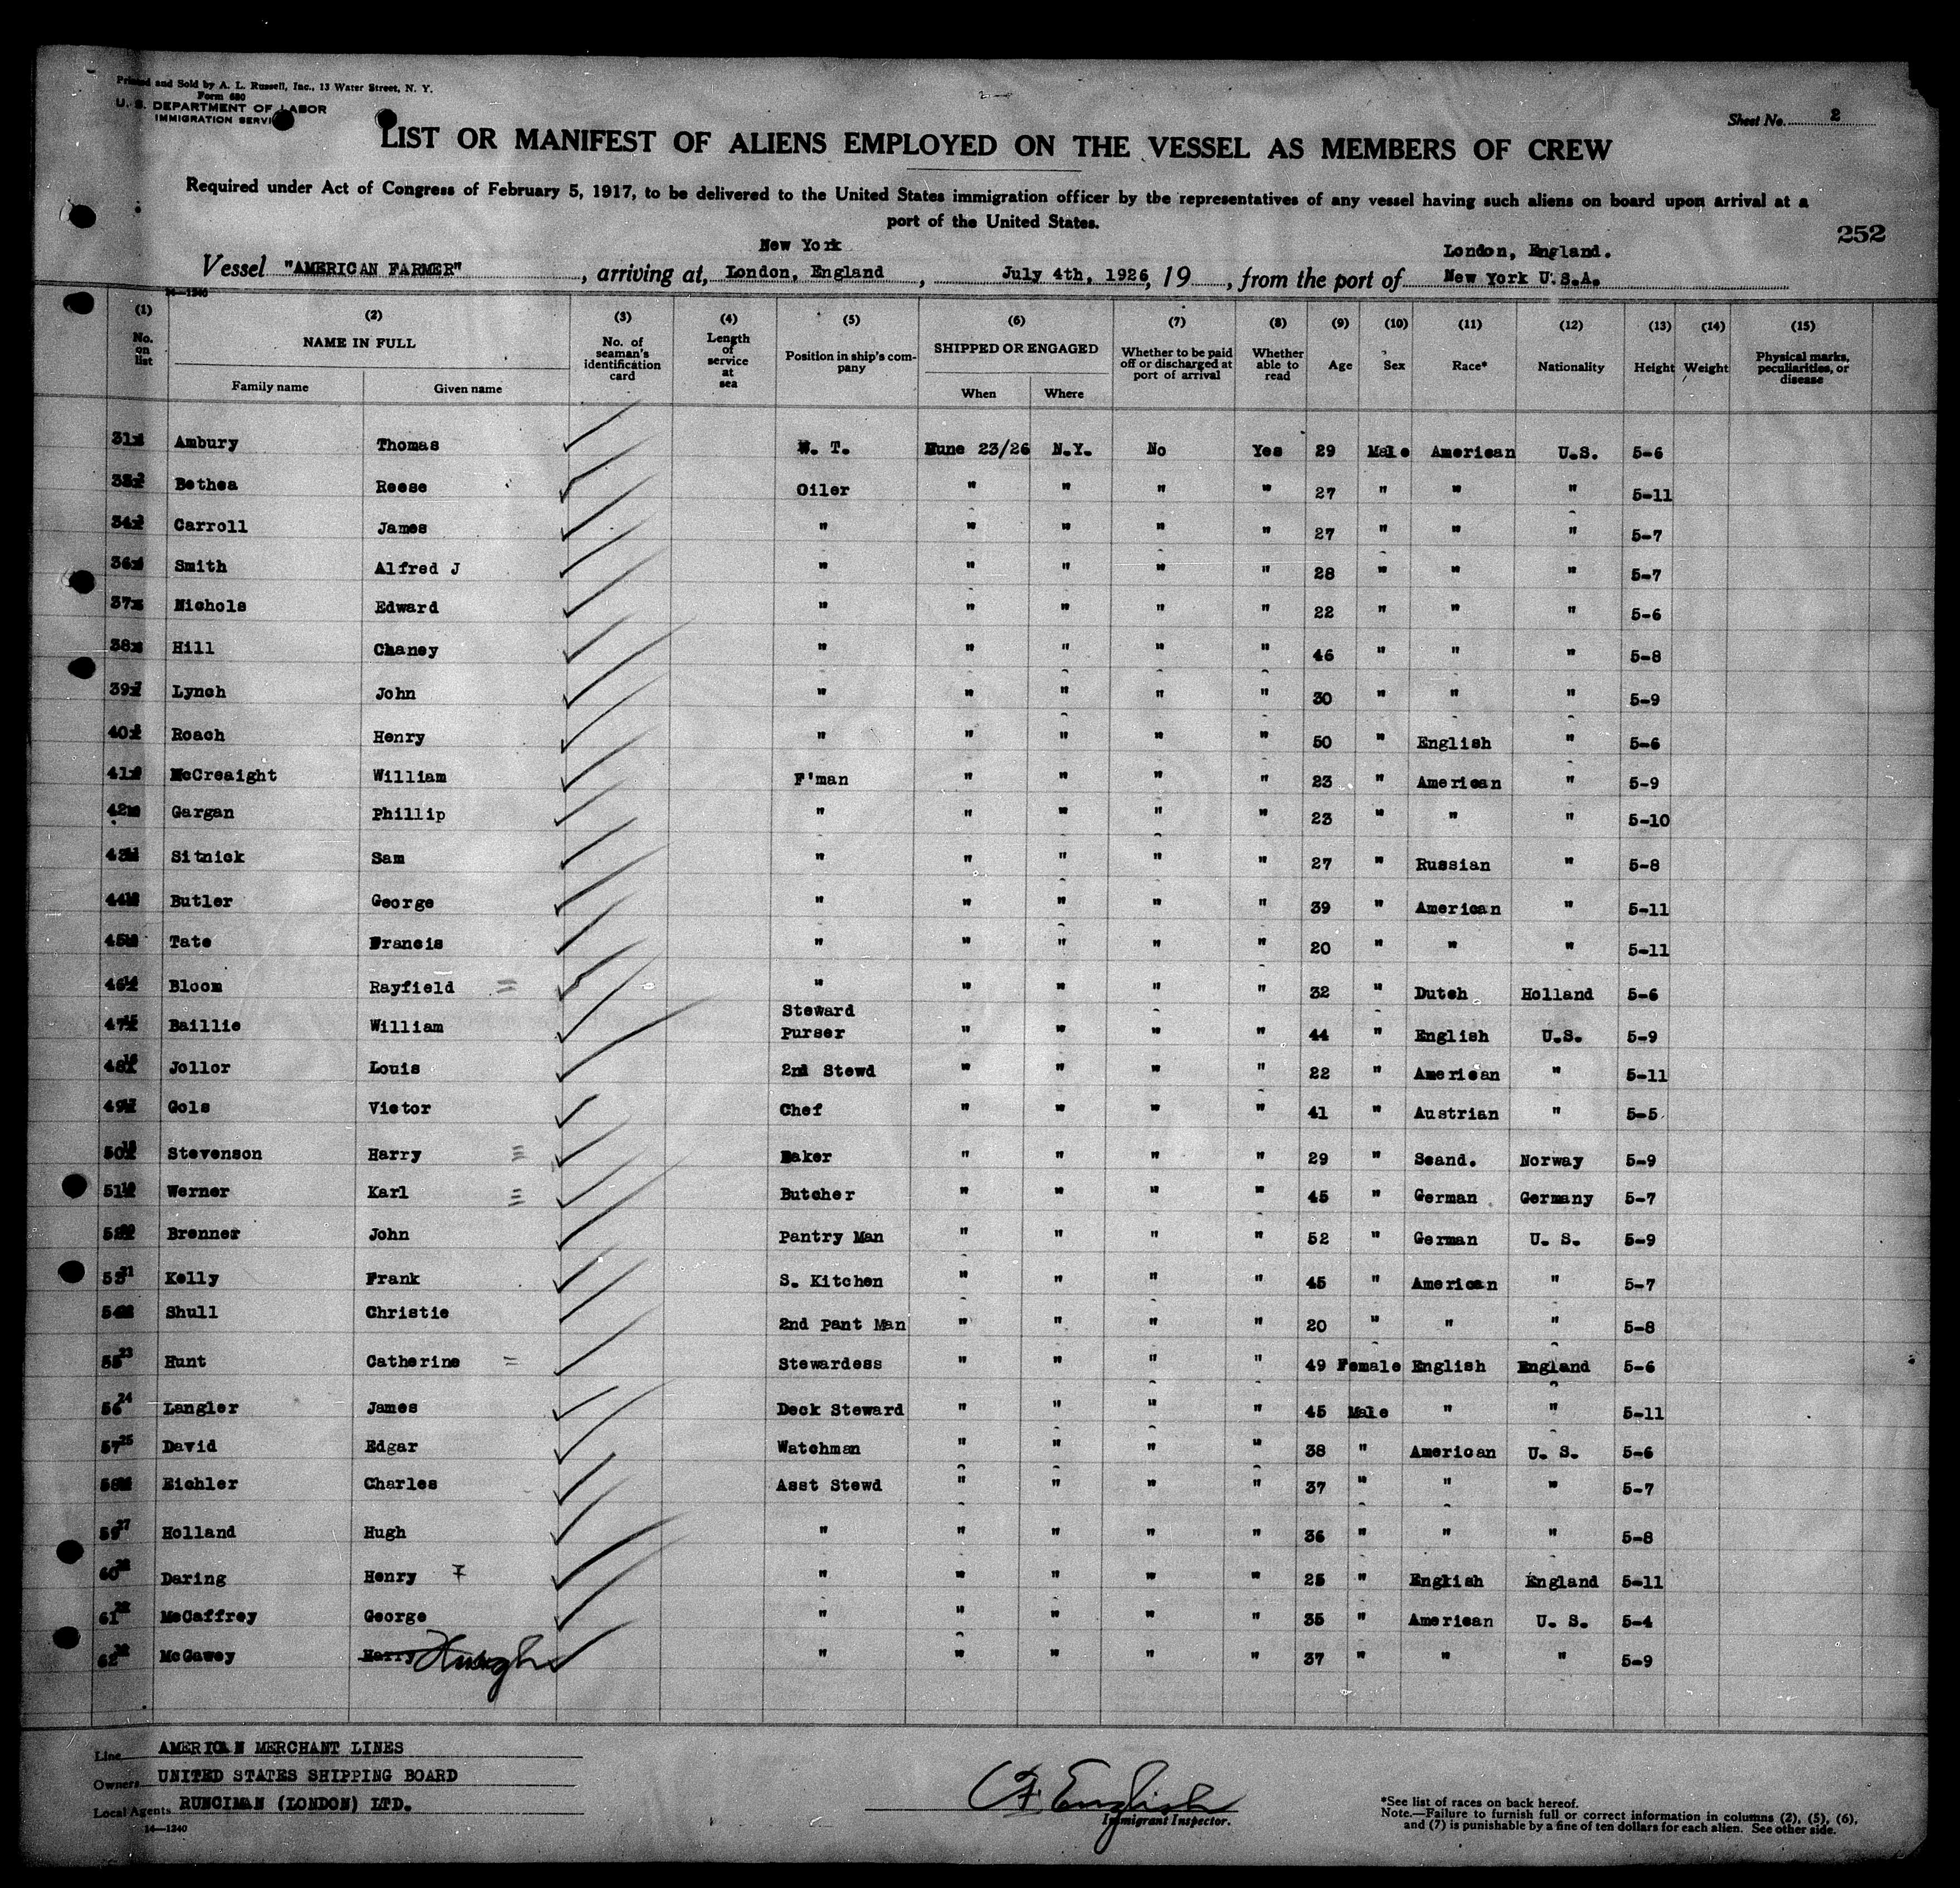 Printed and Sold by A. L. Russell, Inc., 13 Water Street, N. Y.
Form 680
U. S. DEPARTMENT OF LABOR
IMMIGRATION SERVICE
Sheet No. 2
LIST OR MANIFEST OF ALIENS EMPLOYED ON THE VESSEL AS MEMBERS OF CREW
Required under Act of Congress of February 5, 1917, to be delivered to the United States immigration officer by the representatives of any vessel having such aliens on board upon arrival at a
port of the United States.
252
New York London, England.
Vessel "AMERICAN FARMER", arriving at, London, England, July 4th, 1926, 19, from the port of New York U.S.A.
14—1240
(1) (2) (3) (4) (5) (6) (7) (8) (9) (10) (11) (12) (13) (14) (15)
No. on list NAME IN FULL Family name Given name No. of seaman's identification card Length of service at sea Position in ship's company SHIPPED OR ENGAGED When Where Whether to be paid off or discharged at port of arrival Whether able to read Age Sex Race* Nationality Height Weight Physical marks, peculiarities, or disease
31 Ambury Thomas W. T. June 23/26 N.Y. No Yes 29 Male American U.S. 5-6
Bethea Reese Oiler " " " " 27 " " " 5-11
34 Carroll James " " " " " 27 " " " 5-7
36 Smith Alfred J " " " " " 28 " " " 5-7
37 Nichols Edward " " " " " 22 " " " 5-6
38 Hill Chaney " " " " " 46 " " " 5-8
39 Lynch John " " " " " 30 " " " 5-9
40 Roach Henry " " " " " 50 " English " 5-6
41 McCreaight William F'man " " " " 23 " American " 5-9
42 Gargan Phillip " " " " " 23 " " " 5-10
43 Sitnick Sam " " " " " 27 " Russian " 5-8
44 Butler George " " " " " 39 " American " 5-11
45 Tate Francis " " " " " 20 " " " 5-11
46 Bloom Rayfield " " " " " 32 " Dutch Holland 5-6
47 Baillie William Steward Purser " " " " 44 " English U.S. 5-9
48 Jollor Louis 2nd Stewd " " " " 22 " American " 5-11
49 Gols Victor Chef " " " " 41 " Austrian " 5-5
50 Stevenson Harry Baker " " " " 29 " Scand. Norway 5-9
51 Werner Karl Butcher " " " " 45 " German Germany 5-7
52 Brenner John Pantry Man " " " " 52 " German U. S. 5-9
53 Kelly Frank S. Kitchen " " " " 45 " American " 5-7
54 Shull Christie 2nd Pant Man " " " " 20 " " " 5-8
55 23 Hunt Catherine Stewardess " " " " 49 Female English England 5-6
56 24 Langler James Deck Steward " " " " 45 Male " " 5-11
57 25 David Edgar Watchman " " " " 38 " American U. S. 5-6
58 Eichler Charles Asst Stewd " " " " 37 " " " 5-7
59 27 Holland Hugh " " " " " 36 " " " 5-8
60 Daring Henry " " " " " 25 " English England 5-11
61 McCaffrey George " " " " " 35 " American U. S. 5-4
62 McGawey Harry Hugh " " " " " 37 " " " 5-9
Line AMERICAN MERCHANT LINES
Owners UNITED STATES SHIPPING BOARD
Local Agents RUNCIMAN (LONDON) LTD.
14—1240
English
Immigrant Inspector.
*See list of races on back hereof.
Note.—Failure to furnish full or correct information in columns (2), (5), (6),
and (7) is punishable by a fine of ten dollars for each alien. See other side.